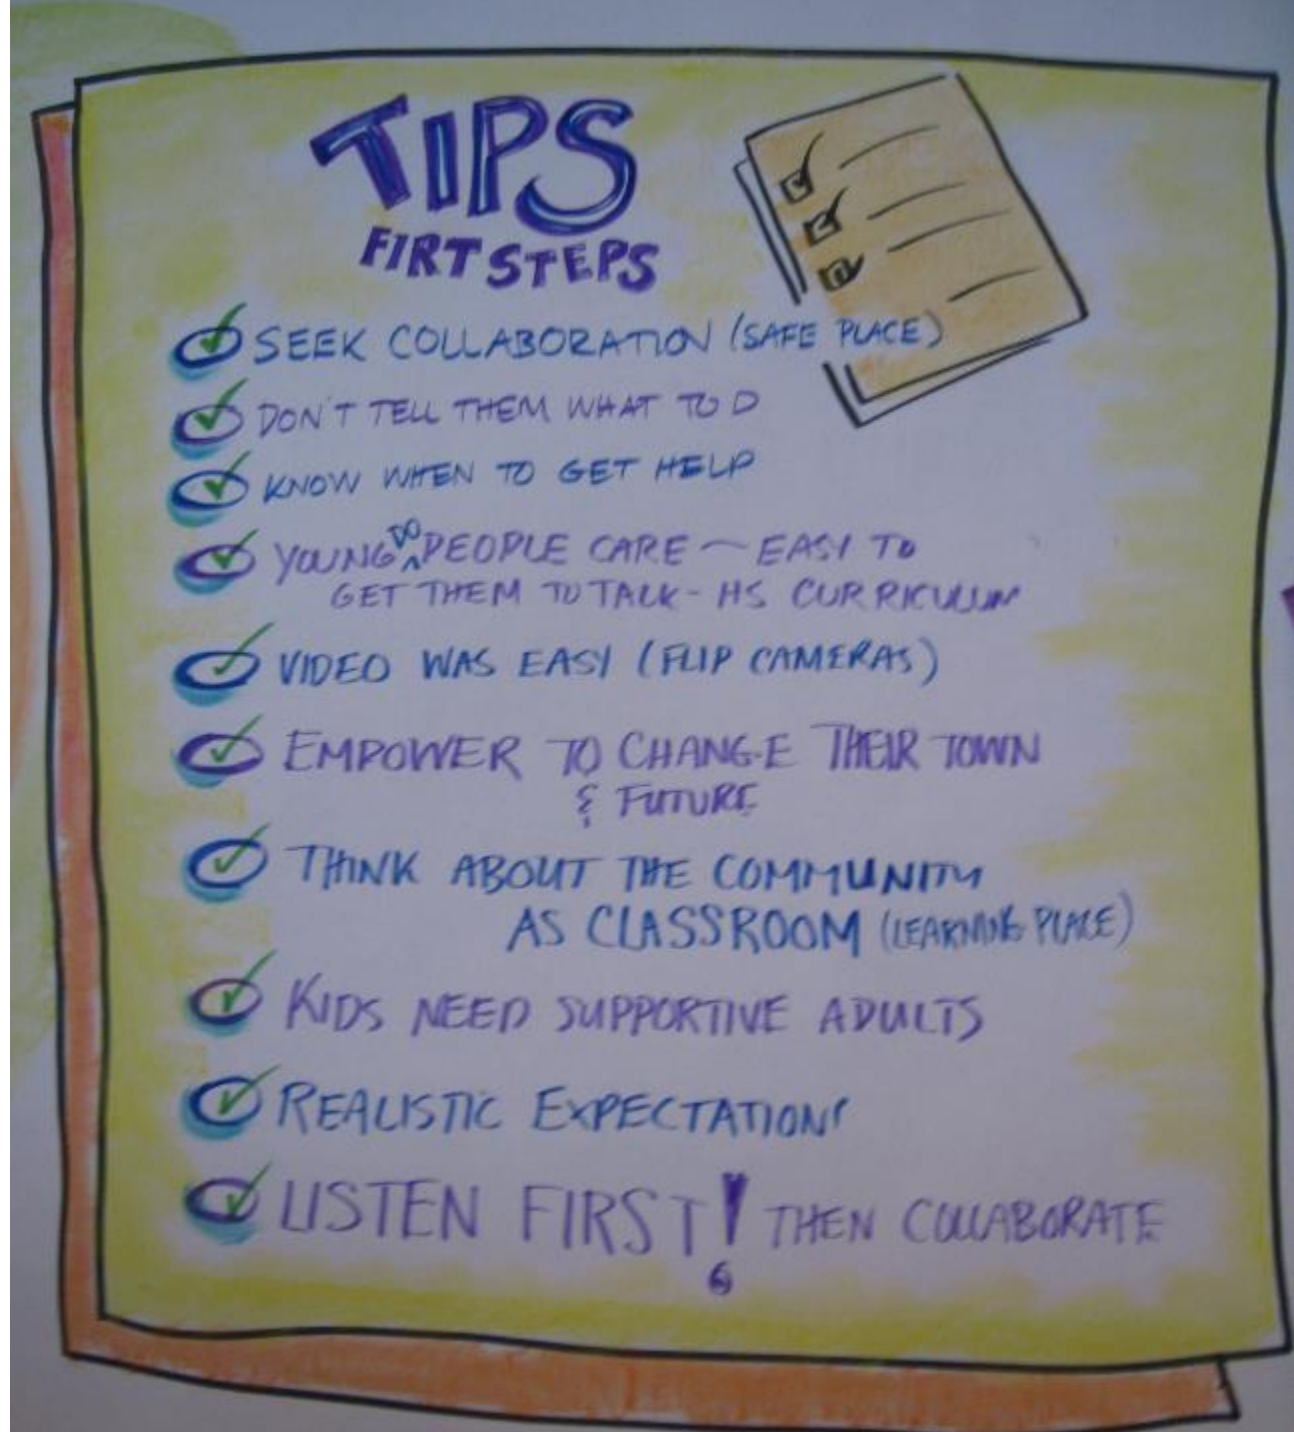 TIPS
FIRT STEPS
SEEK COLLABORATION (SAFE PLACE)
DON'T TELL THEM WHAT TO D
KNOW WHEN TO GET HELP
YOUNG DO PEOPLE CARE — EASY TO
GET THEM TO TALK - HS CURRICULUM
VIDEO WAS EASY (FLIP CAMERAS)
EMPOWER TO CHANGE THEIR TOWN
& FUTURE
THINK ABOUT THE COMMUNITY
AS CLASSROOM (LEARNING PLACE)
KIDS NEED SUPPORTIVE ADULTS
REALISTIC EXPECTATIONS
LISTEN FIRST! THEN COLLABORATE